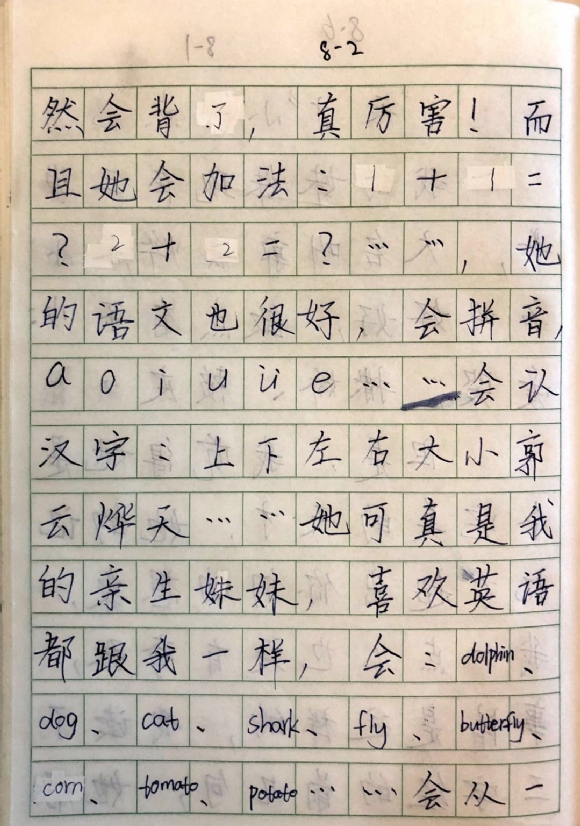 8-2
然会背了，真厉害！而
且她会加法：1+1=
？2+2=？……，她
的语文也很好，会拼音，
a o i u ü e……会认
汉字：上下左右大小郭
云烨天……她可真是我
的亲生妹妹，喜欢英语
都跟我一样，会：dolphin、
dog、cat、shark、fly、butterfly、
corn、tomato、potato……会从一